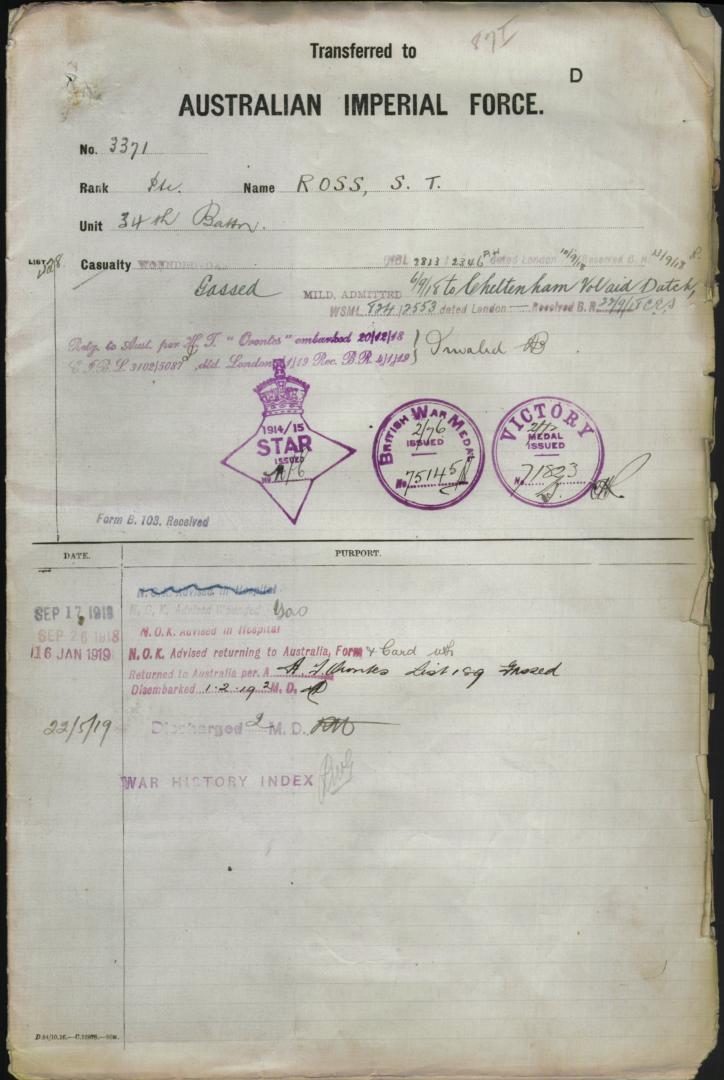 Transferred to
D
AUSTRALIAN IMPERIAL FORCE.
No. 3371
Rank Pte. Name ROSS, S. T.
Unit 34th Battn.
LIST 528
Casualty WOUNDED 2813 2346 dated London 10/9/18 Received B. R. 12/9/18
Gassed MILD, ADMITTED 6/9/18 to Cheltenham Vol aid Datch,
WSML 2553 dated London Received B. R. 22/9/18
Retg. to Aust. per H. T. "Orontes" embarked 20/12/18 } Invalid
E.I.B.L. 3102/5087 dtd. London 1/19 Rec. B.R. 4/1/19
1914/15
STAR
ISSUED
No.
BRITISH WAR MEDAL
2/76
ISSUED
No. 75145
VICTORY
MEDAL
ISSUED
No. 71893
Form B. 103. Received
DATE. PURPORT.
N.O.K. Advised in Hospital
SEP 17 1918 N. O. K. Advised Wounded Gas
SEP 26 1918 N.O.K. Advised in Hospital
16 JAN 1919 N.O.K. Advised returning to Australia, Form & Card
Returned to Australia per. H T Orontes List 189 Gassed
Disembarked 1.2.19 2 M. D.
22/5/19 Discharged 2 M. D.
WAR HISTORY INDEX